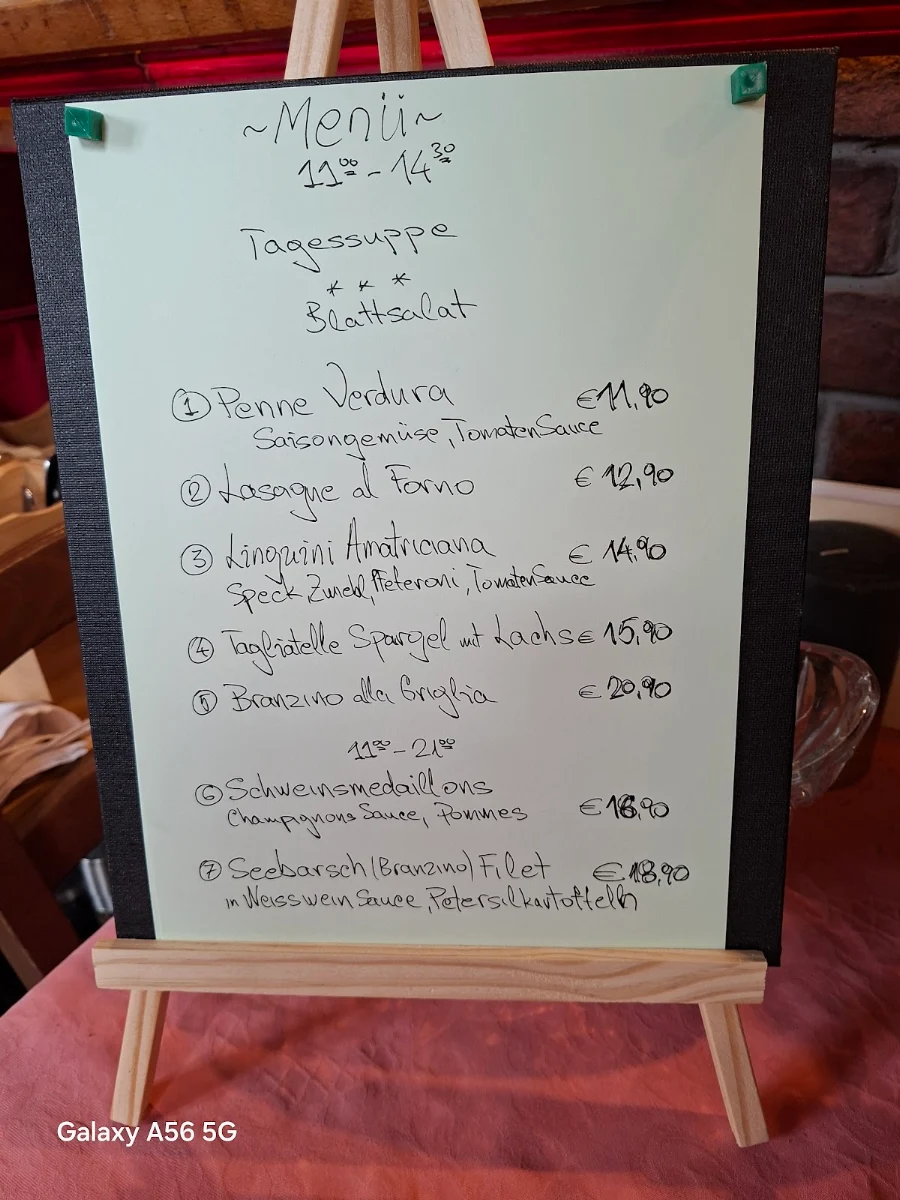 ~Menü~
11⁰⁰ - 14³⁰
Tagessuppe
* * *
Blattsalat
① Penne Verdura € 11,90
Saisongemüse, TomatenSauce
② Lasagne al Forno € 12,90
③ Linguini Amatriciana € 14,90
Speck, Zwiebl, Pfeferoni, TomatenSauce
④ Tagliatelle Spargel mit Lachs € 15,90
⑤ Branzino alla Griglia € 20,90
11⁰⁰ - 21⁰⁰
⑥ Schweinsmedaillons
Champignons Sauce, Pommes € 16,90
⑦ Seebarsch (Branzino) Filet € 18,90
in Weisswein Sauce, Petersilkartoffeln
Galaxy A56 5G